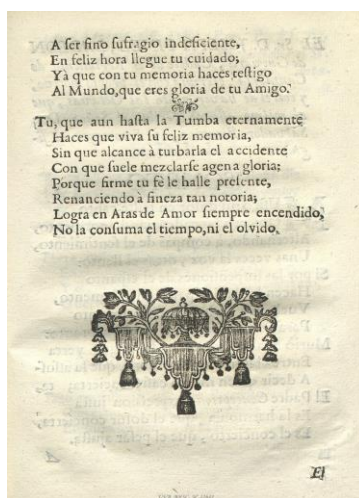 A ſer fino ſufragio indeficiente,
En feliz hora llegue tu cuidado;
Yà que con tu memoria haces teſtigo
Al Mundo, que eres gloria de tu Amigo.
Tu, que aun haſta la Tumba eternamente
Haces que viva ſu feliz memoria,
Sin que alcance à turbarla el accidente
Con que ſuele mezclarſe agena gloria;
Porque firme tu fè le halle preſente,
Renanciendo à fineza tan notoria;
Logra en Aras de Amor ſiempre encendido,
No la conſuma el tiempo, ni el olvido.
El